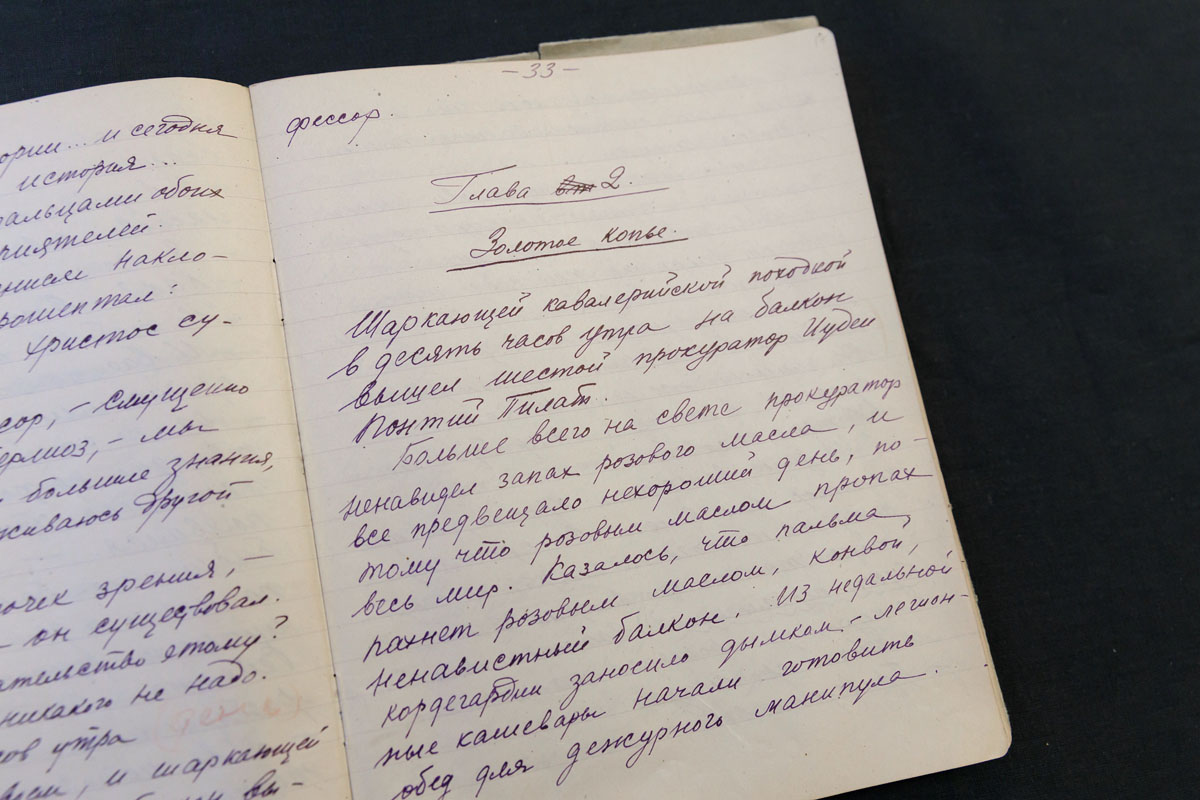 ории... и сегодня
история...
пальцами обоих
приятелей.
накло-
прошептал:
Христос су-
сор, - смущенно
Берлиоз, - мы
большие знания,
другой
точек зрения, -
- он существовал.
этому?
никакого не надо.
утра
и шаркающей
вы-
- 33 -
фессор.
Глава 2.
Золотое копье.
Шаркающей кавалерийской походкой
в десять часов утра на балкон
вышел шестой прокуратор Иудеи
Понтий Пилат.
Больше всего на свете прокуратор
ненавидел запах розового масла, и
все предвещало нехороший день, по-
тому что розовым маслом пропах
весь мир. Казалось, что пальма
пахнет розовым маслом, конвой,
ненавистный балкон. Из недальной
кордегардии заносило дымком - легион-
ные кашевары начали готовить
обед для дежурного манипула.